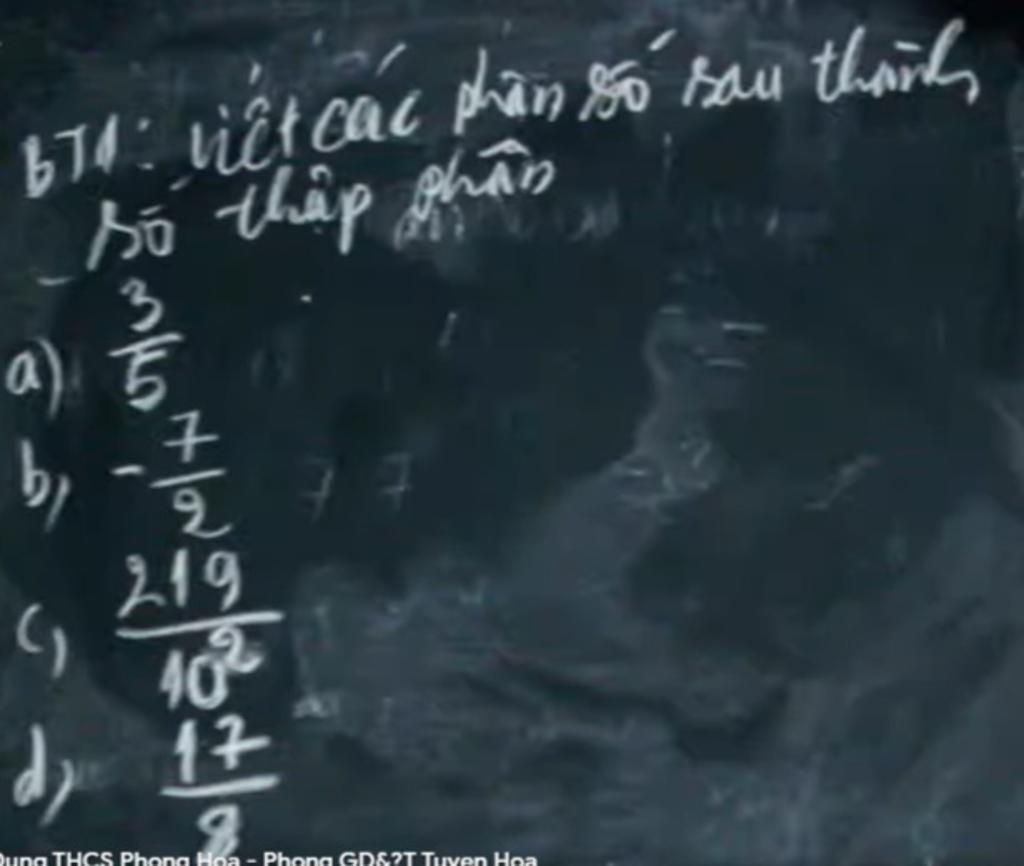 BT1: viết các phân số sau thành
số thập phân
a) 3/5
b, - 7/2
7 7
c, 219/10²
d, 17/8
Dung THCS Phong Hoa - Phong GD&?T Tuyen Hoa